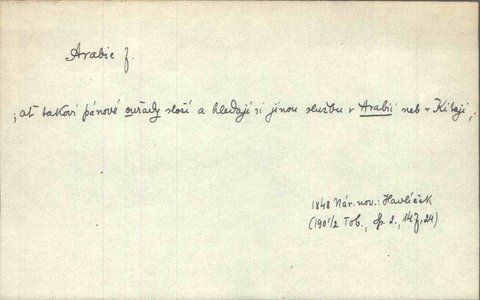 Arabie f.
; ať takoví pánové ouřady složí a hledají si jinou službu v Arabii neb v Kitaji,
1848 Nár. nov.: Havlíček
(1901/2 Tob., sp. 2.,